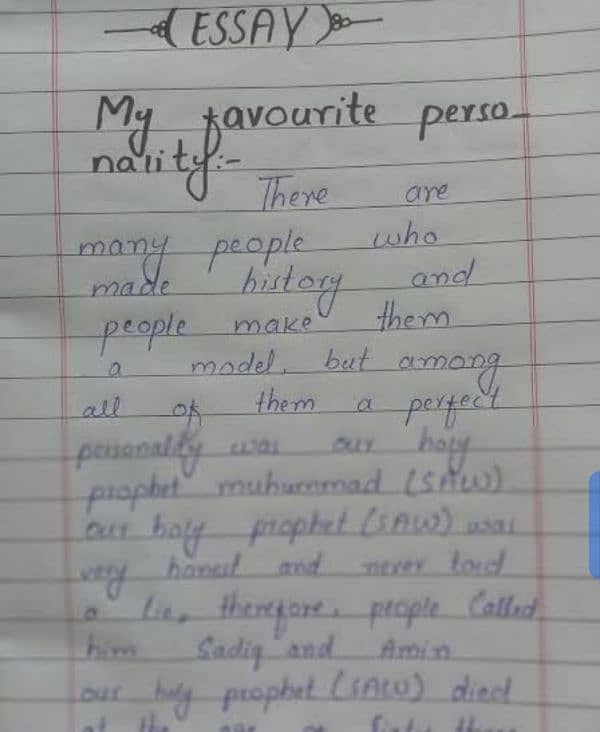 (ESSAY)
My favourite perso-
nality:-
There are
many people who
made history and
people make them
a model, but among
all of them a perfect
personality was our holy
prophet muhummad (SAW)
our holy prophet (SAW) was
very honest and never told
a lie, therefore, people Called
him Sadiq and Amin
our holy prophet (SAW) died
at the age of Sixty three